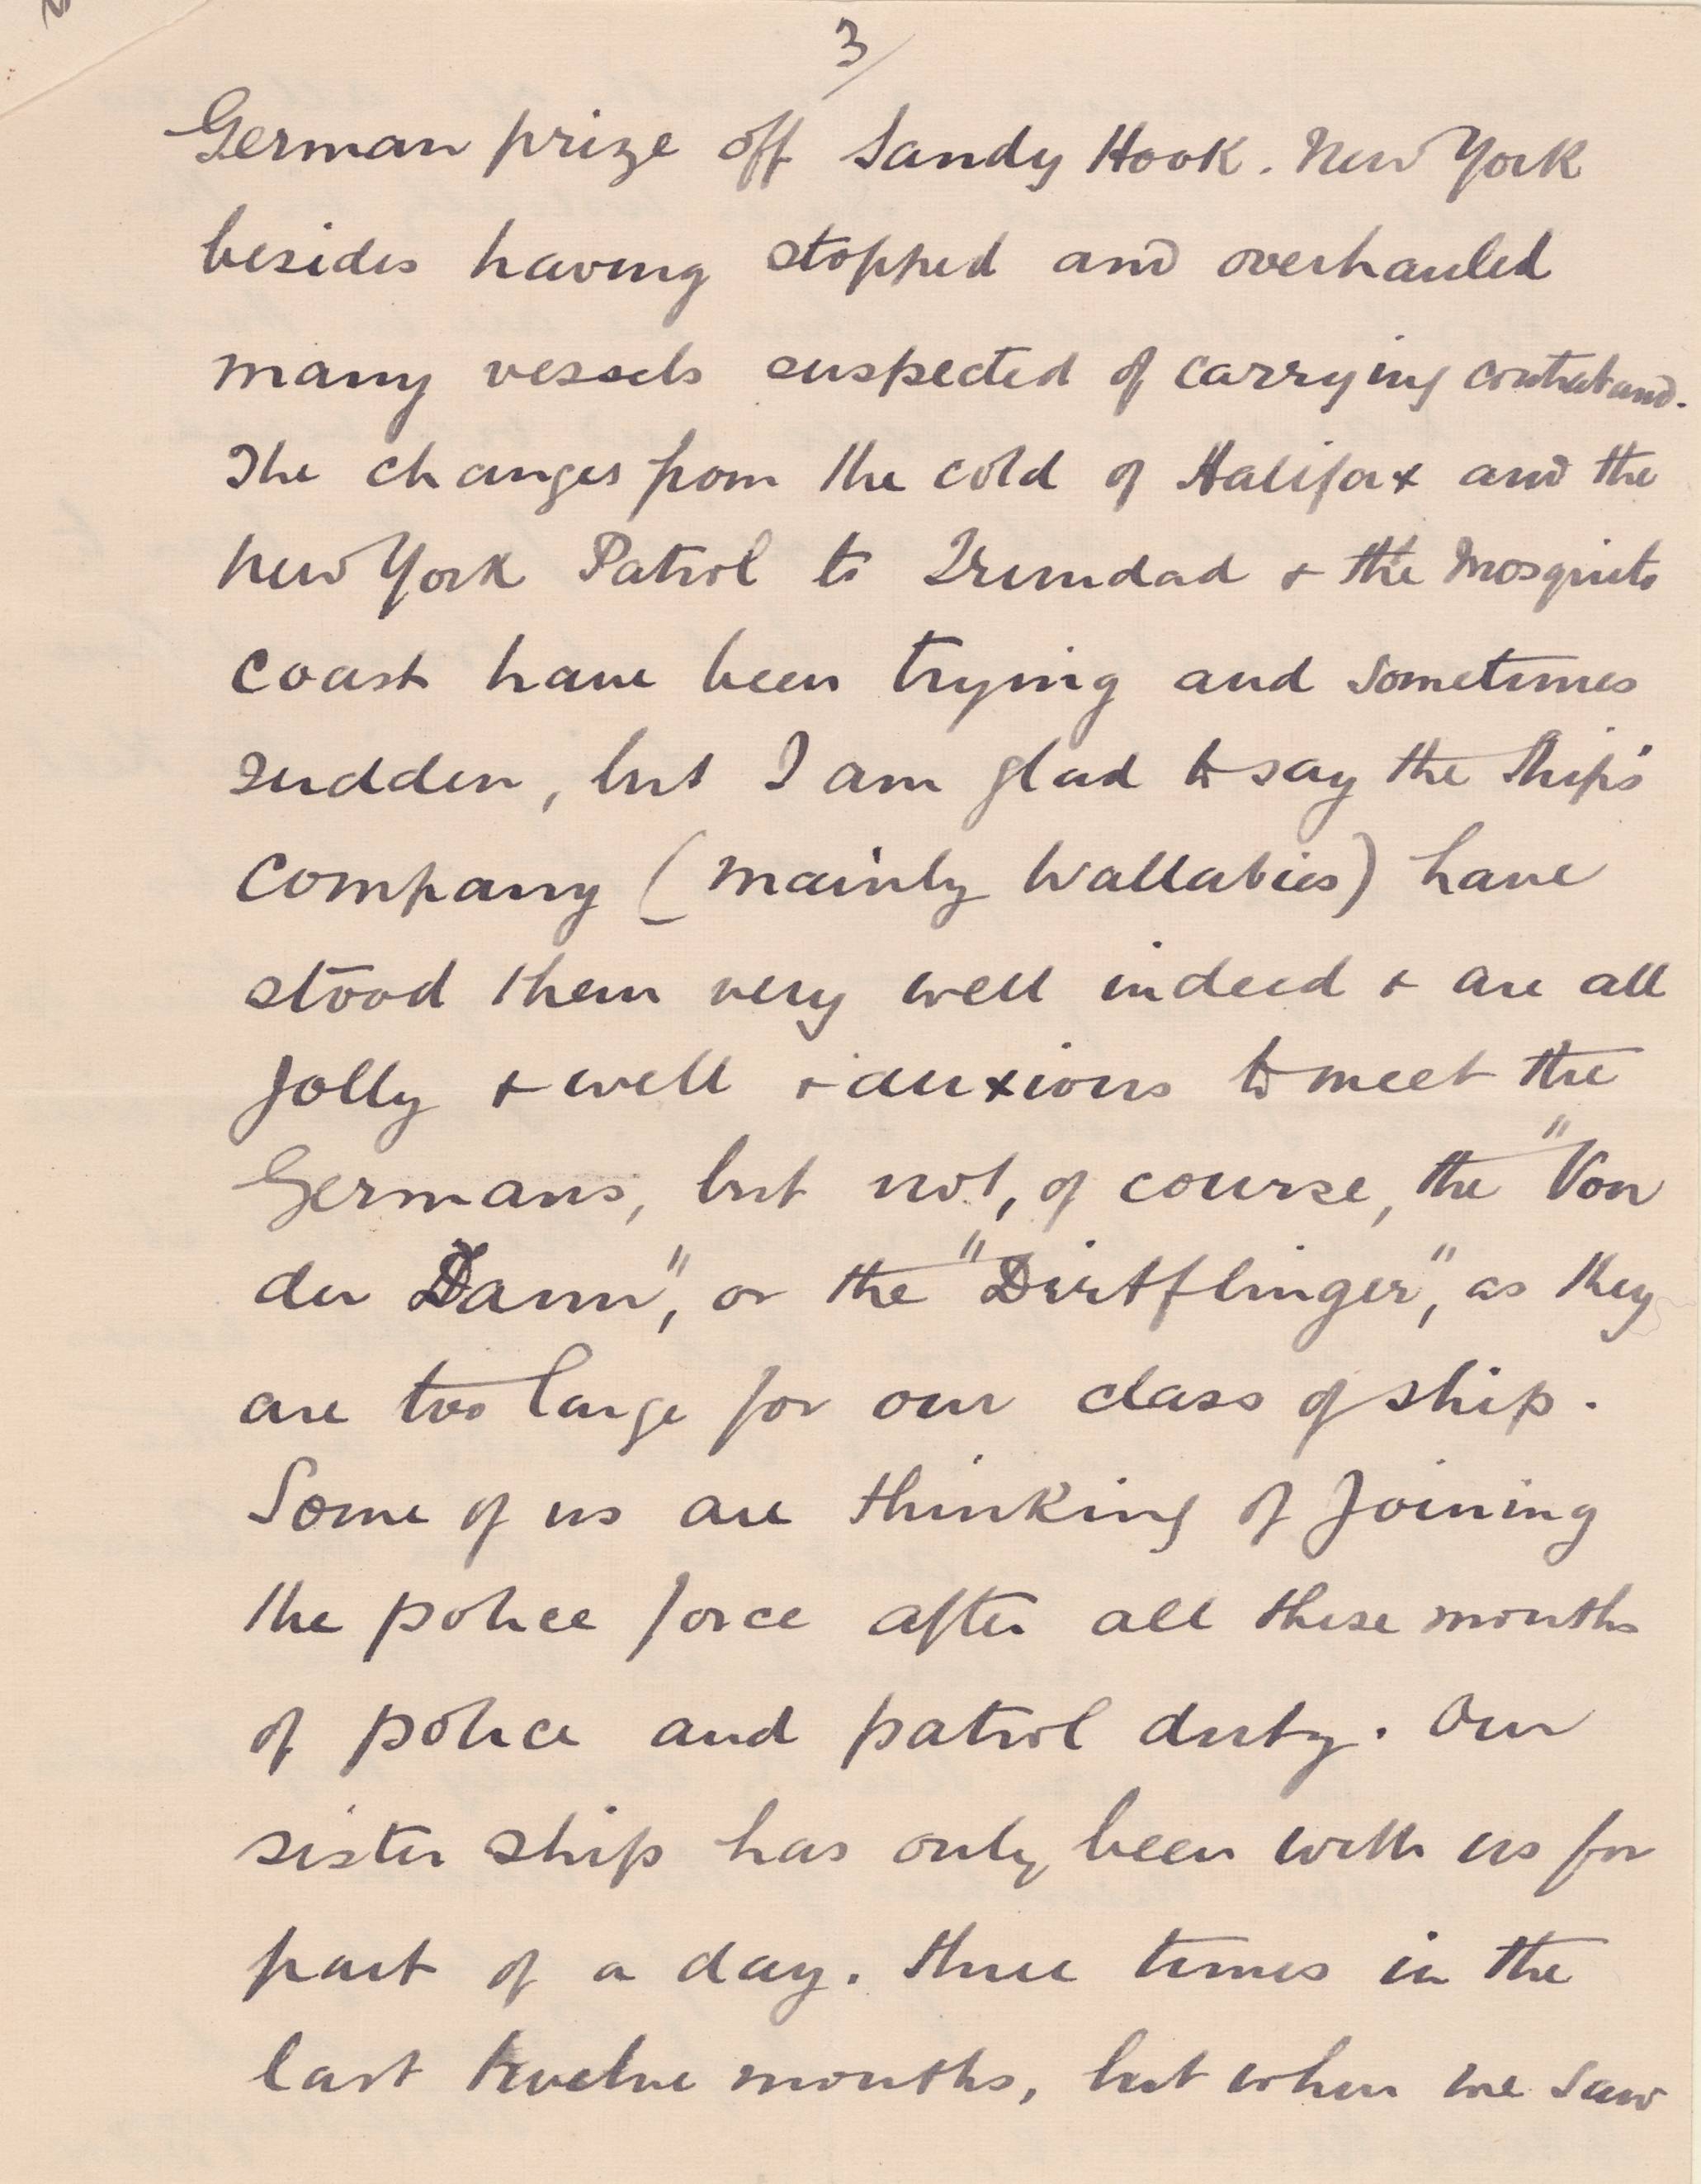 3/
German prize off Sandy Hook. New York
besides having stopped and overhauled
many vessels suspected of carrying contraband.
The changes from the cold of Halifax and the
New York Patrol to Trinidad & the Mosquito
coast have been trying and sometimes
sudden, but I am glad to say the ship's
company (mainly Wallabies) have
stood them very well indeed & are all
jolly & well & anxious to meet the
Germans, but not, of course, the "Von
der Damn", or the "Dirtflinger", as they
are too large for our class of ship.
Some of us are thinking of joining
the police force after all these months
of police and patrol duty. Our
sister ship has only been with us for
part of a day. three times in the
last twelve months, but when we saw